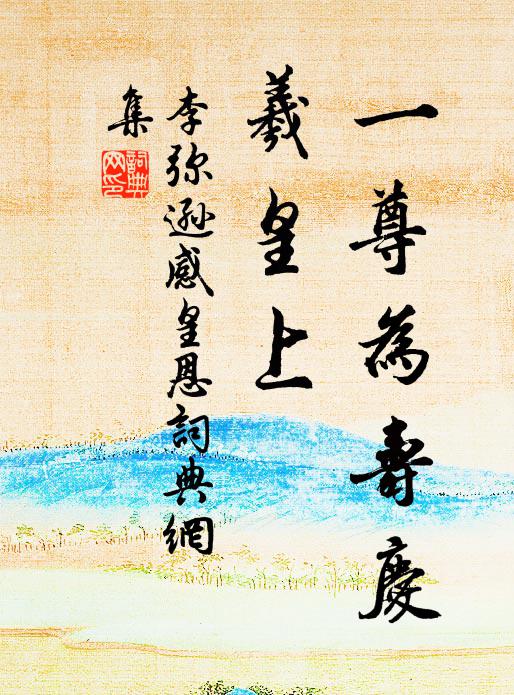 一尊為壽慶
羲皇上
李弥遜感皇恩詞典網
集
詞典
网印